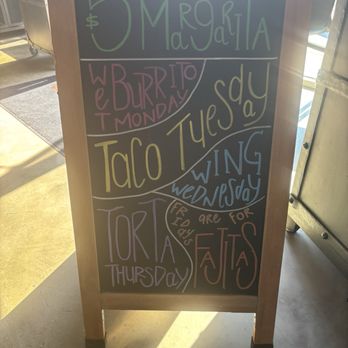 $5 MARGARITA
WET BURRITO
MONDAY
TACO TUESDAY
WING
WEDNESDAY
TORTA
THURSDAY
FRIDAYS
ARE FOR
FAJITAS